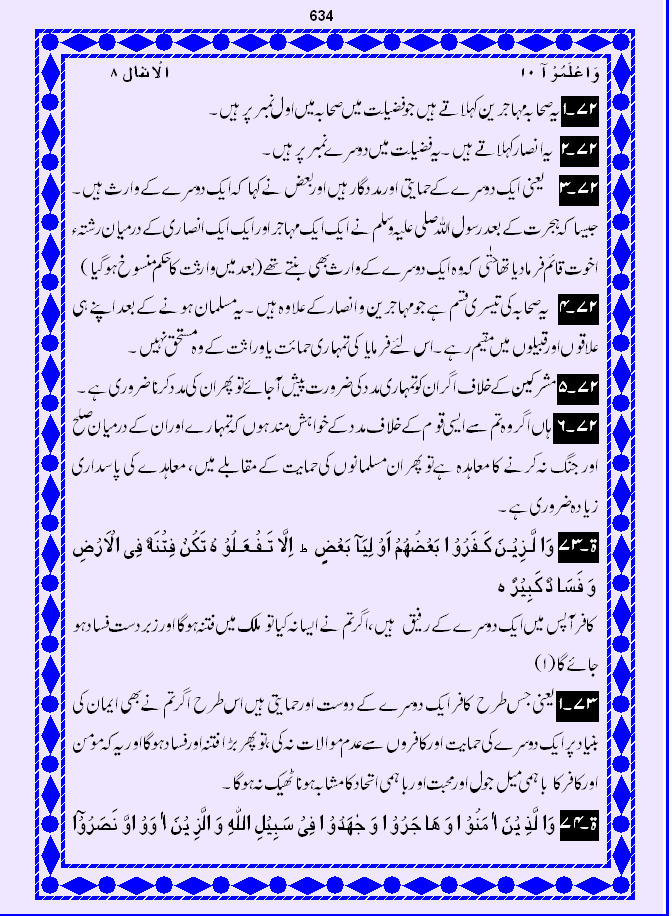 634
وَاعْلَمُوْۤا ۱۰ الْاَنفَال ۸
۷۲۔۱ یہ صحابہ مہاجرین کہلاتے ہیں جو فضیلت میں صحابہ میں اول نمبر پر ہیں۔
۷۲۔۲ یہ انصار کہلاتے ہیں۔ یہ فضیلت میں دوسرے نمبر پر ہیں۔
۷۲۔۳ یعنی ایک دوسرے کے حمایتی اور مددگار ہیں اور بعض نے کہا کہ ایک دوسرے کے وارث ہیں۔
جیسا کہ ہجرت کے بعد رسول اللہ صلی علیہ وسلم نے ایک ایک مہاجر اور ایک ایک انصاری کے درمیان رشتہء
اخوت قائم فرما دیا تھا حتٰی کہ وہ ایک دوسرے کے وارث بھی بنتے تھے (بعد میں وارثت کا حکم منسوخ ہو گیا)
۷۲۔۴ یہ صحابہ کی تیسری قسم ہے جو مہاجرین و انصار کے علاوہ ہیں۔ یہ مسلمان ہونے کے بعد اپنے ہی
علاقوں اور قبیلوں میں مقیم رہے۔ اس لئے فرمایا کی تمہاری حمائت یا وراثت کے وہ مستحق نہیں۔
۷۲۔۵ مشرکین کے خلاف اگر ان کو تمہاری مدد کی ضرورت پیش آجائے تو پھر ان کی مدد کرنا ضروری ہے۔
۷۲۔۶ ہاں اگر وہ تم سے ایسی قوم کے خلاف مدد کے خواہش مند ہوں کہ تمہارے اور ان کے درمیان صلح
اور جنگ نہ کرنے کا معاہدہ ہے تو پھر ان مسلمانوں کی حمایت کے مقابلے میں، معاہدے کی پاسداری
زیادہ ضروری ہے۔
ۃ۔۷۳ وَالَّزِیْنَ کَفَرُوْا بَعْضُھُمْ اَوْلِیَآ بَعْضٍ ط اِلَّا تَفْعَلُوْہُ تَکُنْ فِتْنَۃٌ فِی الْاَرْضِ
وَفَسَادٌ کَبِیْرٌ ہ
کافر آپس میں ایک دوسرے کے رفیق ہیں، اگر تم نے ایسا نہ کیا تو ملک میں فتنہ ہوگا اور زبردست فساد ہو
جائے گا (۱)
۷۳۔۱ یعنی جس طرح کافر ایک دوسرے کے دوست اور حمایتی ہیں اس طرح اگر تم نے بھی ایمان کی
بنیاد پر ایک دوسرے کی حمایت اور کافروں سے عدم موالات نہ کی، تو پھر بڑا فتنہ اور فساد ہوگا اور یہ کہ مومن
اور کافر کا باہمی میل جول اور محبت اور باہمی اتحاد کا مشابہ ہونا ٹھیک نہ ہوگا۔
ۃ۔۷۴ وَالَّذِیْنَ اٰمَنُوْا وَھَاجَرُوْا وَجٰھَدُوْا فِیْ سَبِیْلِ اللّٰہِ وَالَّزِیْنَ اٰوَوْا وَّ نَصَرُوْۤا